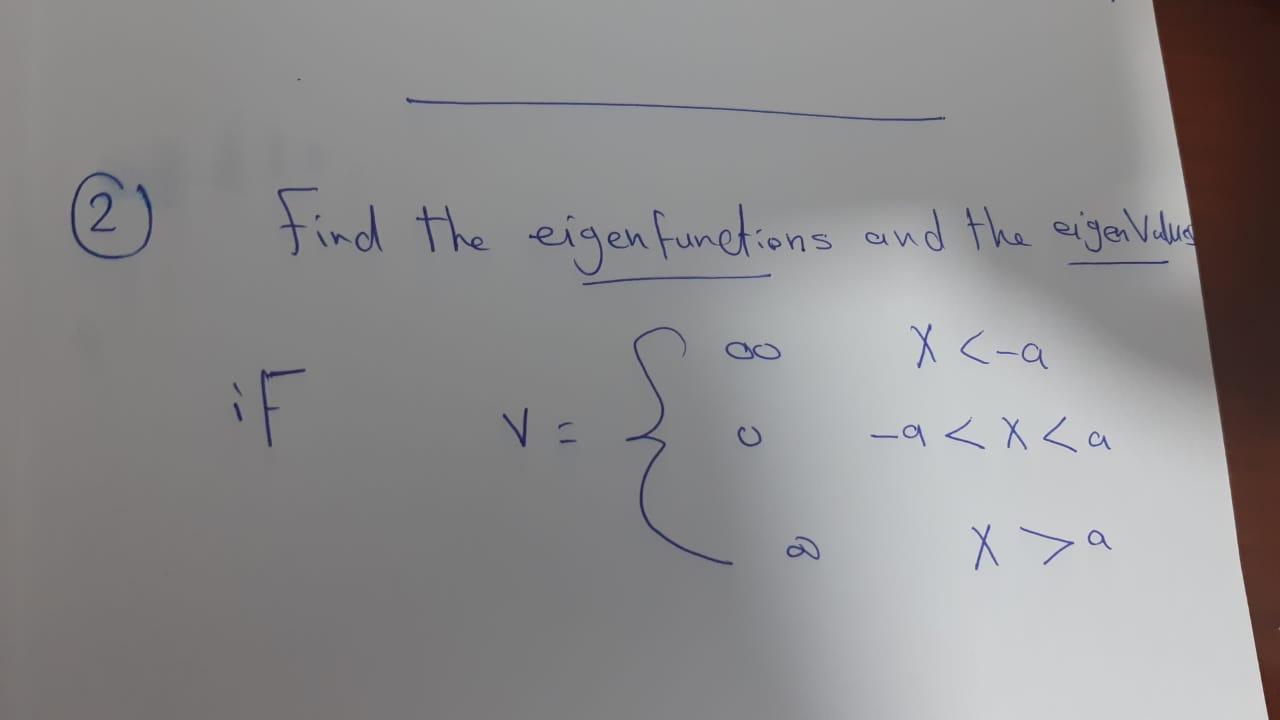 ② Find the eigenfunctions and the eigenvalues
if V = { ∞ X < -a
0 -a < X < a
∞ X > a